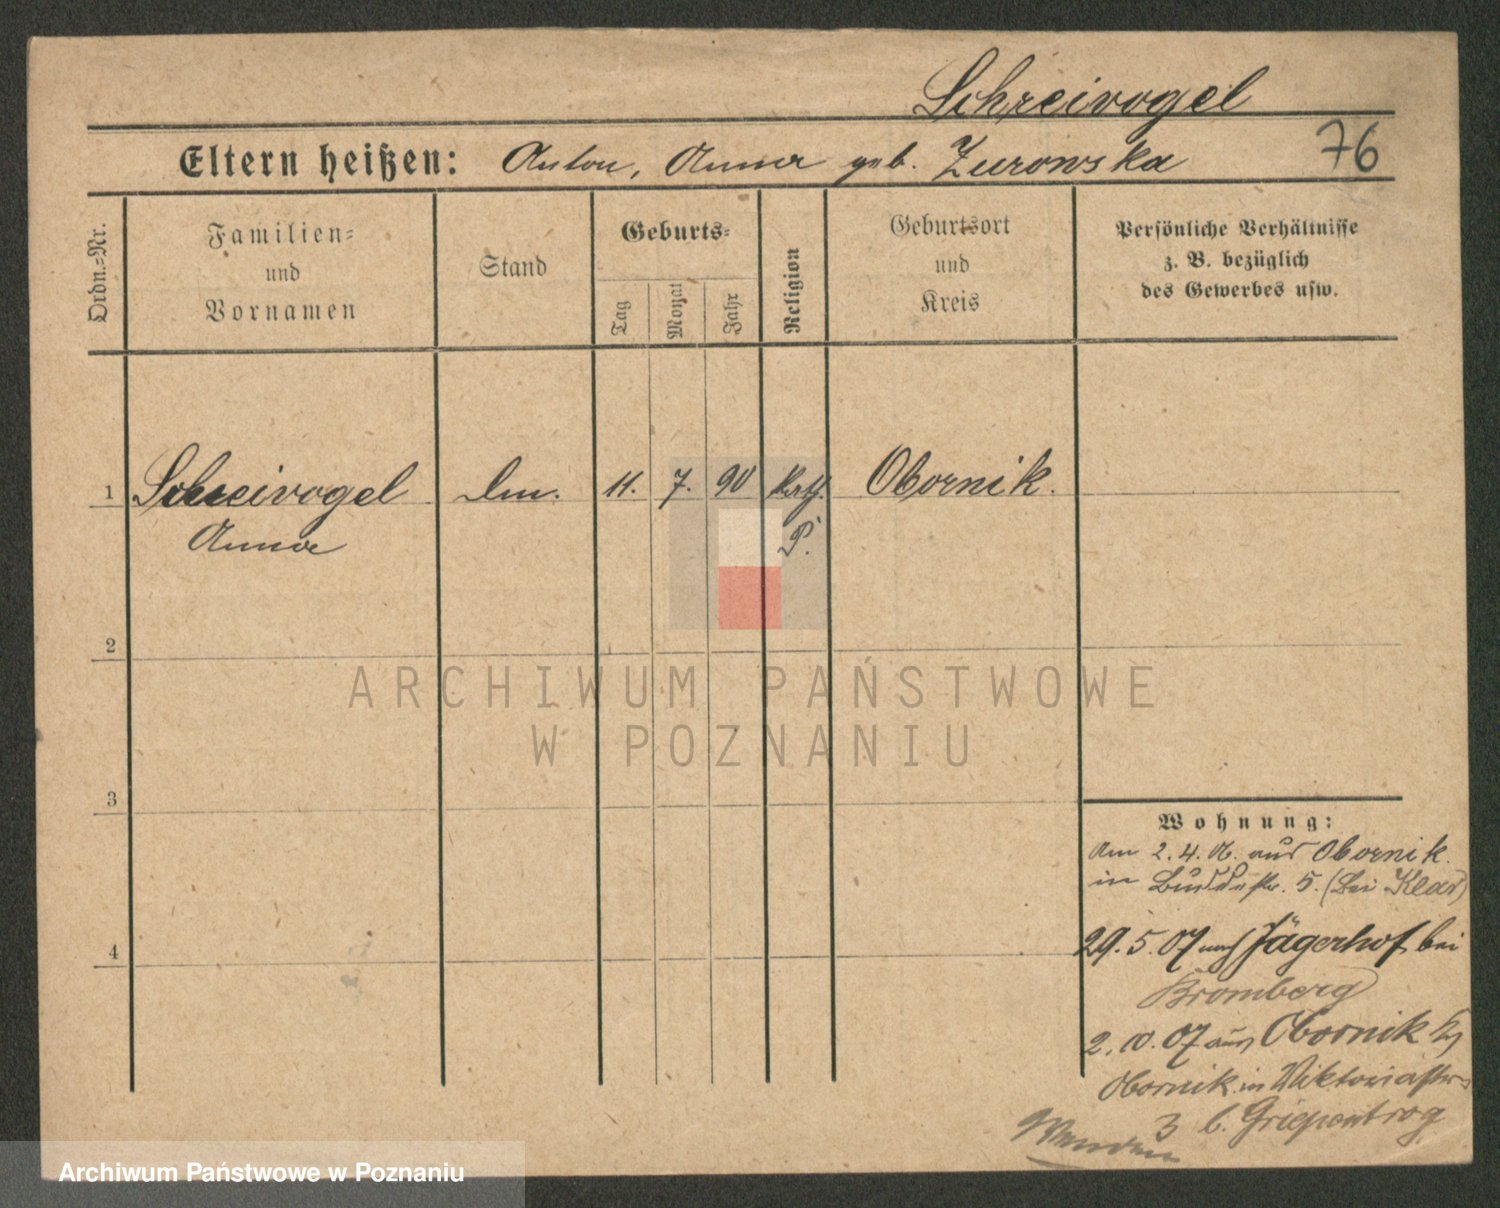 Schreivogel
Eltern heißen: Anton, Anna geb. Zurowska
76
Ordn.-Nr.
Familien-
und
Vornamen
Stand
Geburts-
Tag
Monat
Jahr
Religion
Geburtsort
und
Kreis
Persönliche Verhältnisse
z. B. bezüglich
des Gewerbes usw.
1 Schreivogel 11. 7. 90 Kath. Obornik.
Anna P.
2
3
4
ARCHIWUM PAŃSTWOWE
W POZNANIU
Wohnung:
Am 2. 4. 06. aus Obornik.
in 5. (bei Klar)
29. 5. 07 nach Jägerhof bei
Bromberg
2. 10. 07 aus Obornik
Obornik in Viktoriastr.
3 b. Griepentrog
Wenden
Archiwum Państwowe w Poznaniu